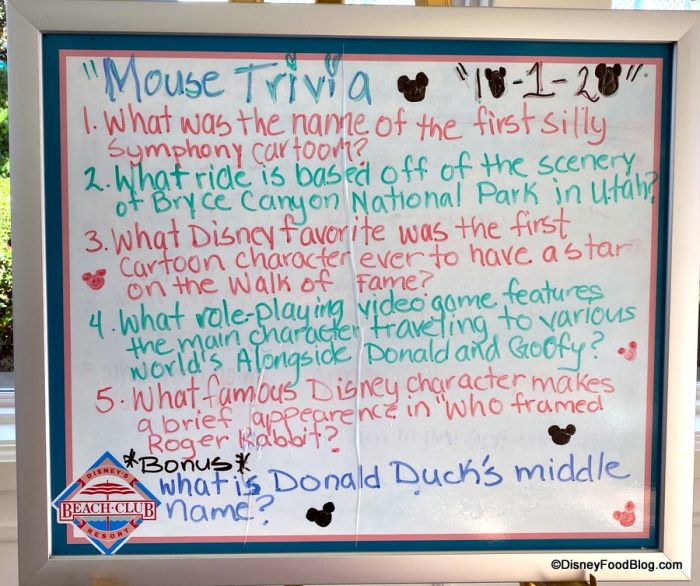 "Mouse Trivia "10-1-20"
1. What was the name of the first silly
symphony cartoon?
2. What ride is based off of the scenery
of Bryce Canyon National Park in Utah?
3. What Disney favorite was the first
cartoon character ever to have a star
on the Walk of Fame?
4. What role-playing video game features
the main character traveling to various
world's Alongside Donald and Goofy?
5. What famous Disney character makes
a brief appearence in "Who framed
Roger Rabbit?
*Bonus*
what is Donald Duck's middle
name?
DISNEY'S
BEACH·CLUB
RESORT
©DisneyFoodBlog.com